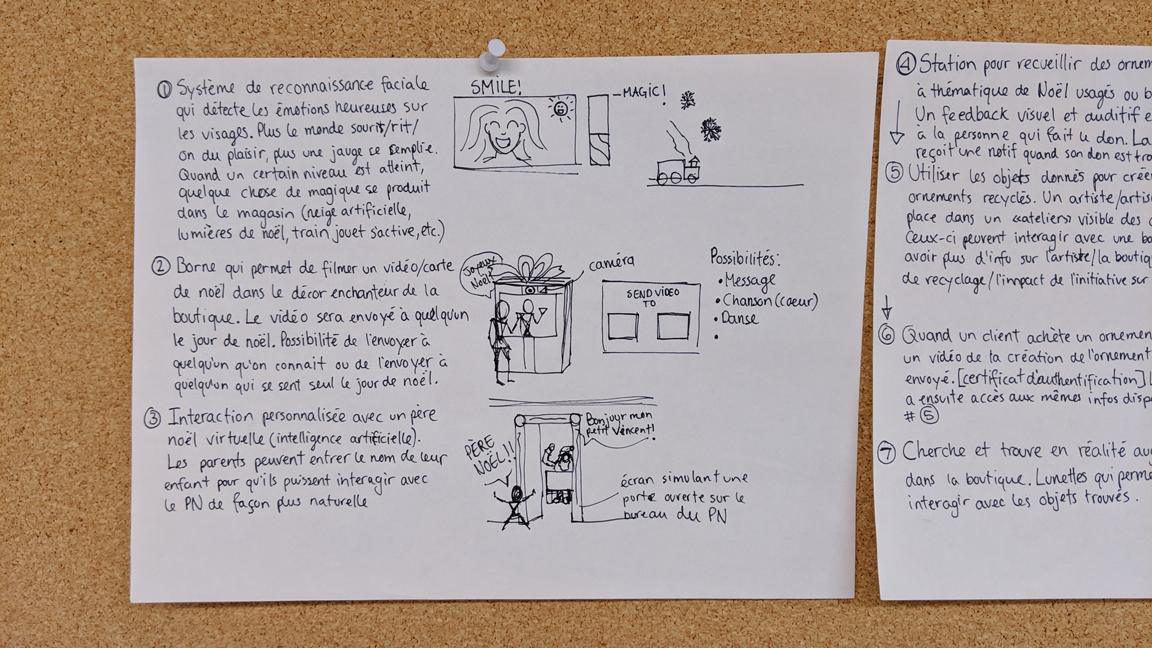 ① Système de reconnaissance faciale
qui détecte les émotions heureuses sur
les visages. Plus le monde sourit/rit/
on du plaisir, plus une jauge ce remplie.
Quand un certain niveau est atteint,
quelque chose de magique se produit
dans le magasin (neige artificielle,
lumières de noël, train jouet s'active, etc.)
SMILE!
MAGIC!
② Borne qui permet de filmer un vidéo/carte
de noël dans le décor enchanteur de la
boutique. Le vidéo sera envoyé à quelqu'un
le jour de noël. Possibilité de l'envoyer à
quelqu'un qu'on connait ou de l'envoyer à
quelqu'un qui se sent seul le jour de noël.
Joyeux
Noël!
caméra
SEND VIDEO
TO
Possibilités:
• Message
• Chanson (coeur)
• Danse
•
③ Interaction personnalisée avec un père
noël virtuelle (intelligence artificielle).
Les parents peuvent entrer le nom de leur
enfant pour qu'ils puissent interagir avec
le PN de façon plus naturelle
PÈRE
NOËL!!
Bonjour mon
petit Vincent!
écran simulant une
porte ouverte sur le
bureau du PN
④ Station pour recueillir des
à thématique de Noël usagés ou
Un feedback visuel et auditif
à la personne qui fait le don. La
reçoit une notif quand son don est
⑤ Utiliser les objets donnés pour
ornements recyclés. Un artiste/
place dans un «atelier» visible des
Ceux-ci peuvent interagir avec une
avoir plus d'info sur l'artiste/la
de recyclage/l'impact de l'initiative sur
⑥ Quand un client achète un
un vidéo de la création de l'ornement
envoyé. [certificat d'authentification]
a ensuite accès aux mêmes infos
# ⑤
⑦ Cherche et trouve en réalité
dans la boutique. Lunettes qui
interagir avec les objets trouvés.